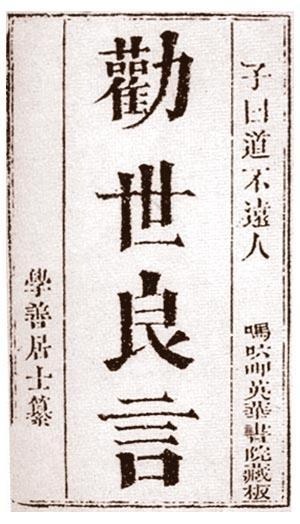 子曰道不遠人
嗎呷英華書院藏板
勸世良言
學善居士纂